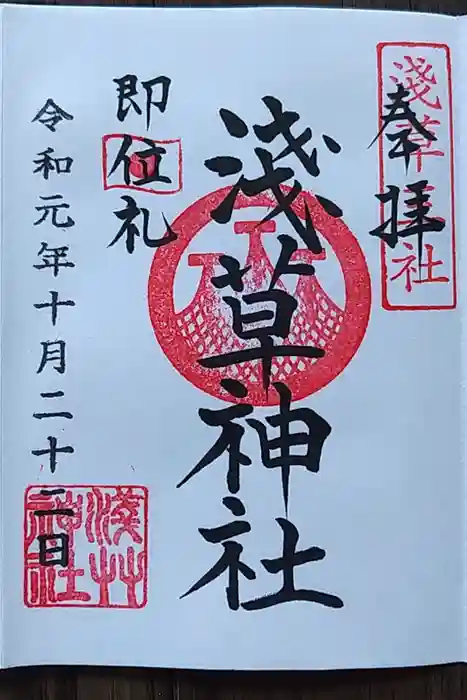 奉拝
淺草神社
淺草神社
即位礼
令和元年十月二十二日
淺草神社